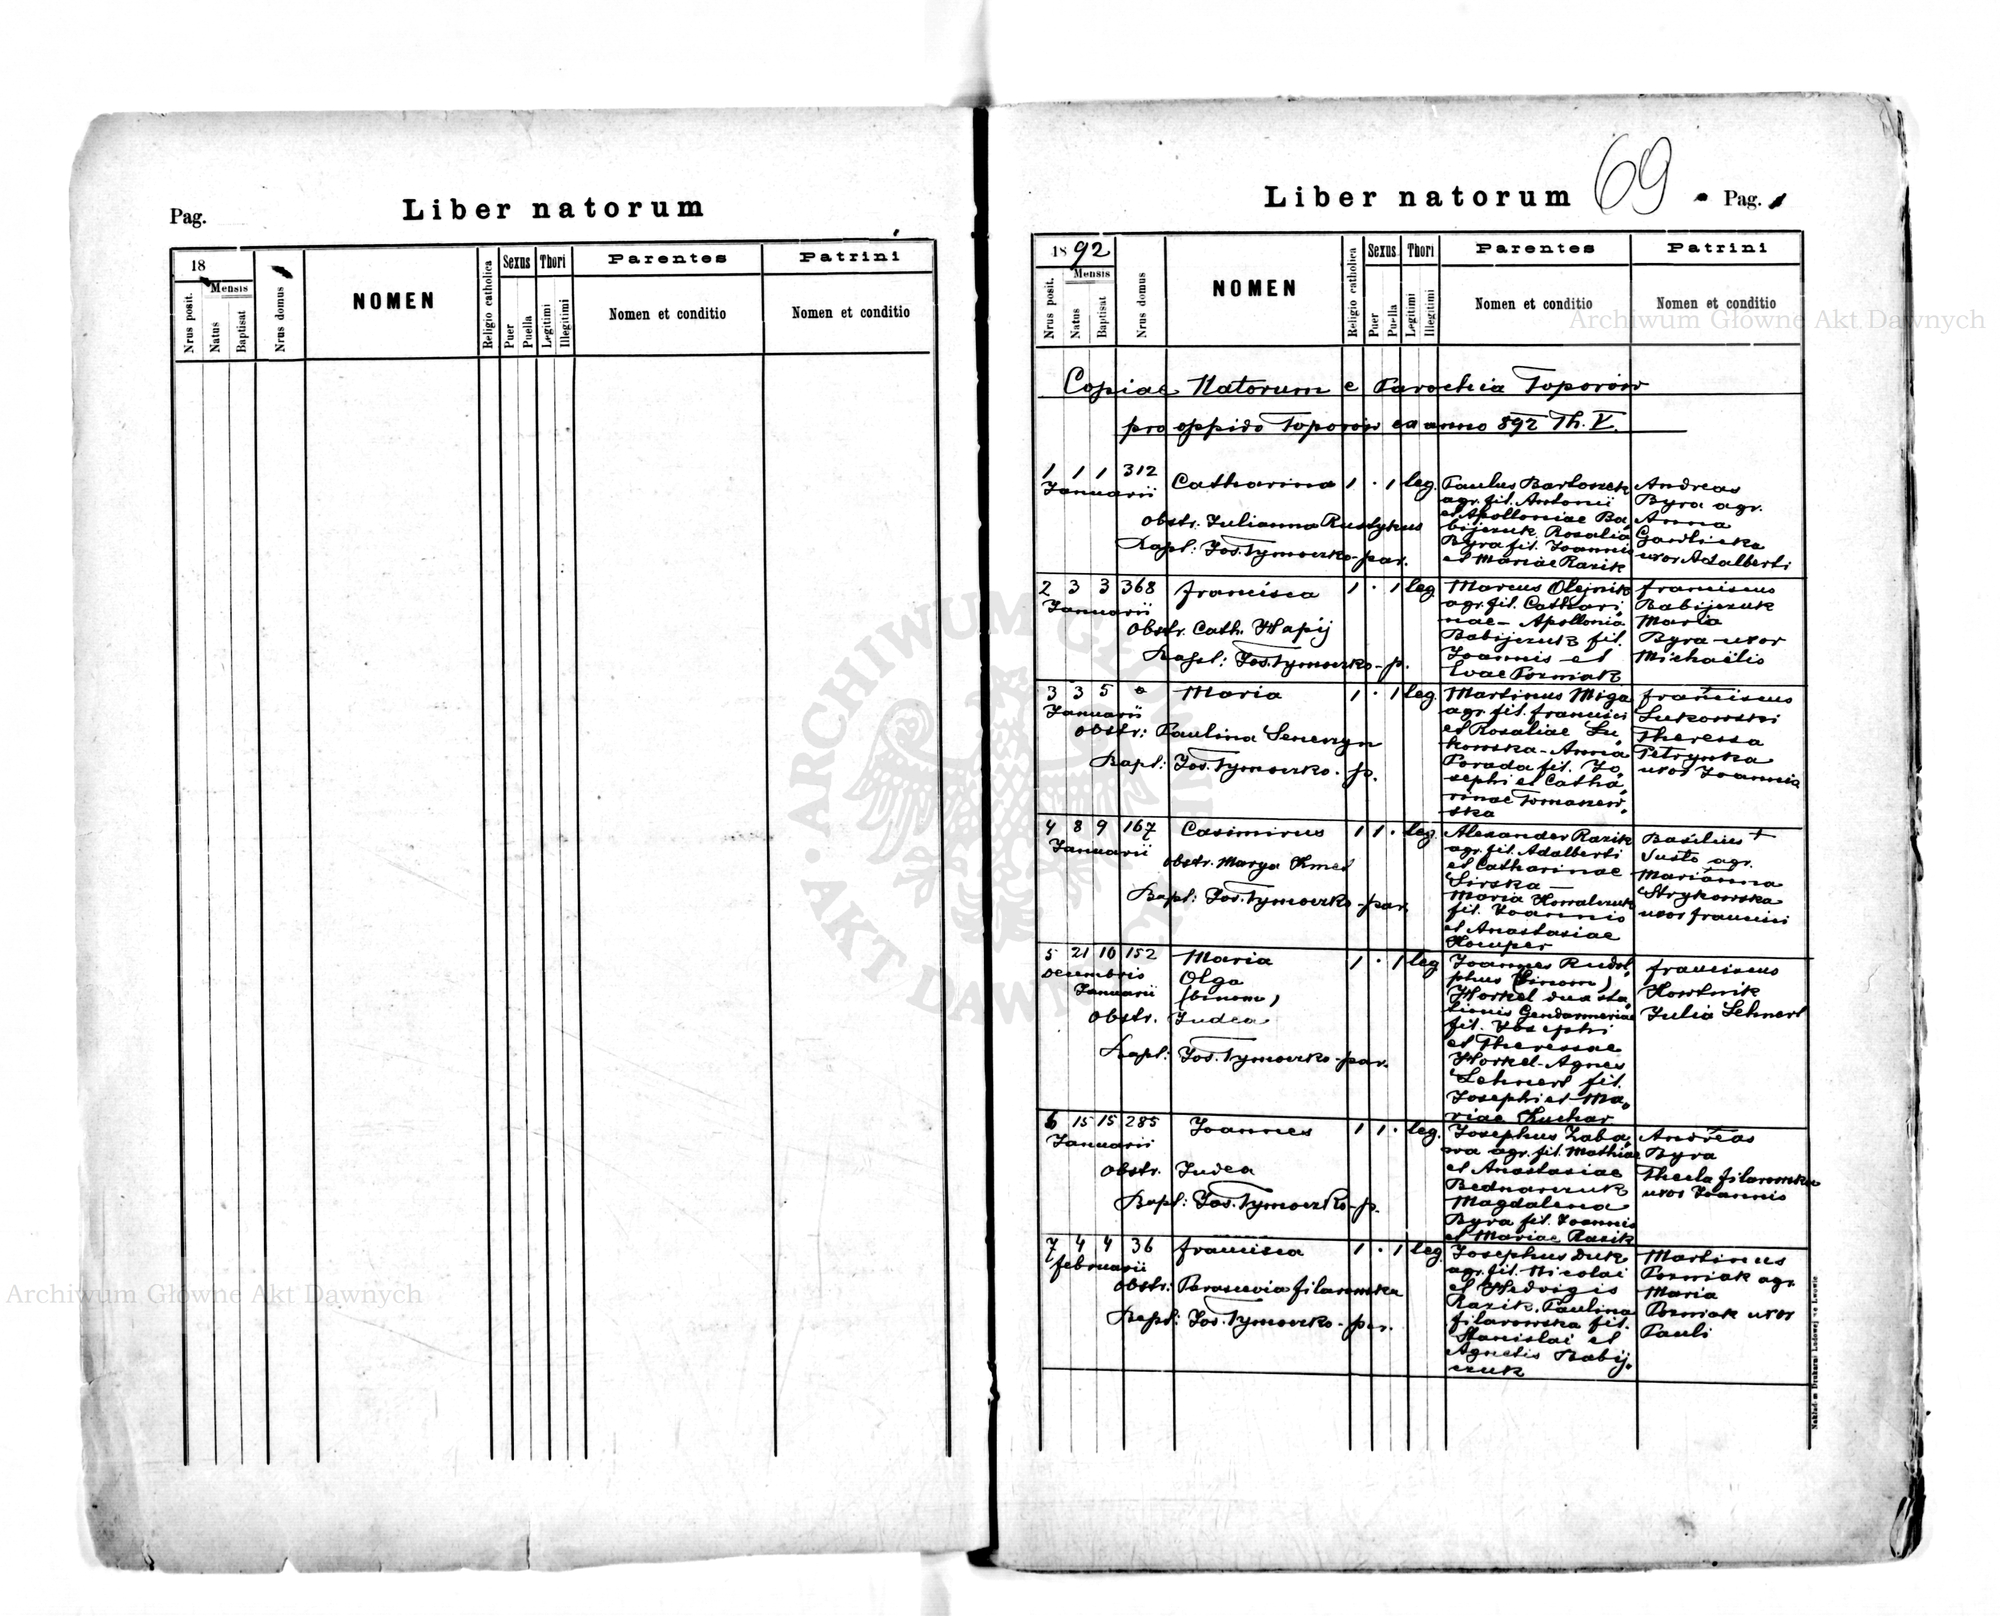 Pag.
Liber natorum
18
Nrus posit.
Mensis
Natus
Baptisat
Nrus domus
NOMEN
Religio catholica
Sexus
Puer
Puella
Thori
Legitimi
Illegitimi
Parentes
Nomen et conditio
Patrini
Nomen et conditio
Liber natorum
69
Pag. 1
1892
Nrus posit.
Mensis
Natus
Baptisat
Nrus domus
NOMEN
Religio catholica
Sexus
Puer
Puella
Thori
Legitimi
Illegitimi
Parentes
Nomen et conditio
Patrini
Nomen et conditio
Copiae Natorum e Parochia Toporów
pro oppido Toporów ex anno 892 Th. V.
1 1 1 312 Catharina 1 · 1 leg.
Januarii
obstr. Julianna
Bapt: Jos. Tymoczko - par.
Paulus Bartoszek
agr. fil. Antonii
et Apolloniae Ba-
bijczuk. Rosalia
Byra fil. Joannis
et Mariae Razik
Andreas
Byra agr.
Anna
Gawlicka
uxor Adalberti
2 3 3 368 Francisca 1 · 1 leg
Januarii
Obstr. Cath. Hapij
Bapt: Jos. Tymoczko - p.
Marcus Olejnik
agr. fil. Cathari-
nae - Apollonia
Babijczuk fil.
Joannis et
Evae Pozniak
Franciscus
Babijczuk
Maria
Byra uxor
Michaëlis
3 3 5 Maria 1 · 1 leg.
Januarii
obstr: Paulina
Bapt: Jos. Tymoczko - p.
Martinus Miga
agr. fil. Francisci
et Rosaliae Łu-
kowska - Anna
Porada fil. Jo-
sephi et Catha-
rinae Tomaszew-
ska
Franciscus
Łukowski
Theressa
Petrynka
uxor Joannis
4 8 9 167 Casimirus 1 1 · leg.
Januarii
obstr. Marya Kmeć
Bapt: Jos. Tymoczko - par.
Alexander Razik
agr. fil. Adalberti
et Catharinae
Sirska -
Maria Kowalczuk
fil. Joannis
et Anastasiae
Basilius +
agr.
Marianna
Strykowska
uxor Francisci
5 21 10 152 Maria 1 · 1 leg
Decembris
Januarii
Olga
(binom)
Obstr. Judea
Bapt: Jos. Tymoczko - par.
Joannes Rudol-
phus (binom)
Horkel dux sta-
tionis Gendarmeriae
fil. Josephi
et Theressae
Horkel - Agnes
Lehnert fil.
Josephi et Ma-
riae Kuchar
Franciscus
Julia Lehnert
6 15 15 285 Joannes 1 1 · leg.
Januarii
Obstr. Judea
Bapt: Jos. Tymoczko - p.
Josephus Zaba-
wa agr. fil. Mathiae
et Anastasiae
Bednarczuk
Magdalena
Byra fil. Joannis
et Mariae Razik
Andreas
Byra
Thecla Filarowska
uxor Joannis
7 4 4 36 Francisca 1 · 1 leg
Februarii
obstr: Parascevia Filarowska
Bapt: Jos. Tymoczko - par.
Josephus Duk
agr. fil. Nicolai
et Hedvigis
Razik. Paulina
Filarowska fil.
Stanislai et
Agnetis Babij-
czuk
Martinus
Pozniak agr.
Maria
Pozniak uxor
Pauli
Nakładem Drukarni Ludowej we Lwowie
Archiwum Główne Akt Dawnych
Archiwum Główne Akt Dawnych
ARCHIWUM GŁÓWNE AKT DAWNYCH